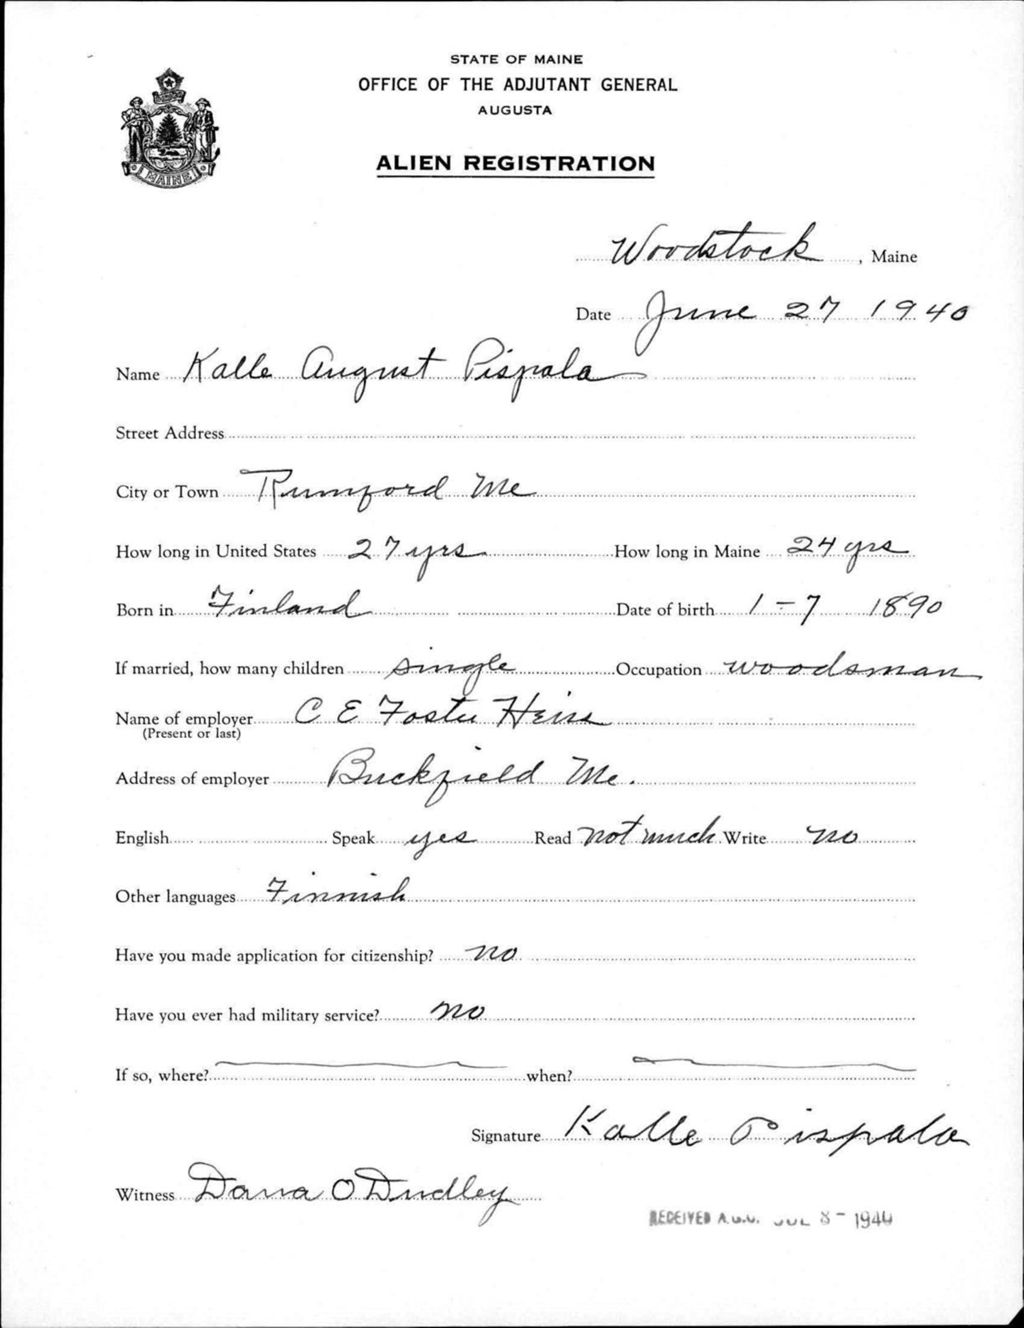 STATE OF MAINE
OFFICE OF THE ADJUTANT GENERAL
AUGUSTA
ALIEN REGISTRATION
MAINE
Woodstock, Maine
Date June 27 1940
Name Kalle August Pispala
Street Address
City or Town Rumford Me
How long in United States 27 yrs How long in Maine 24 yrs
Born in Finland Date of birth 1-7 1890
If married, how many children single Occupation woodsman
Name of employer C E Foster Heirs
(Present or last)
Address of employer Buckfield Me.
English Speak yes Read not much Write no
Other languages Finnish
Have you made application for citizenship? no
Have you ever had military service? no
If so, where? when?
Signature Kalle Pispala
Witness Dana O Dudley
RECEIVED A.G.O. JUL 8 - 1940